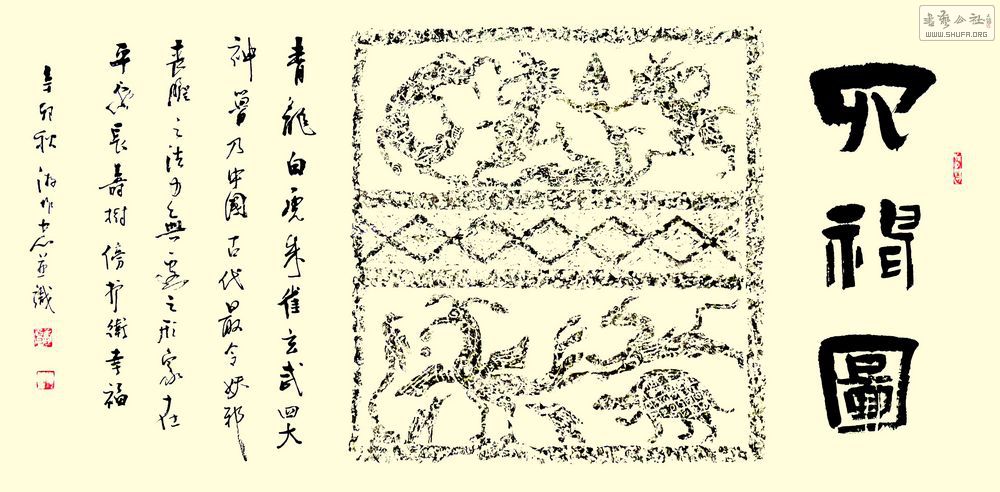 四神圖
青龍白虎朱雀玄武四大
神兽乃中國古代最令妖邪
喪膽之法力無邊之形象在
平安長壽樹傍护衛幸福
辛卯秋 並識
書藝公社
WWW.SHUFA.ORG